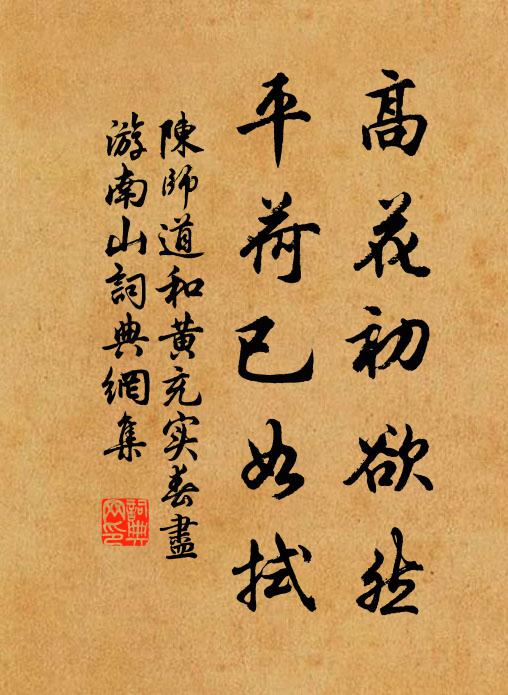 高花初欲然
平荷已如拭
陳師道和黃充实春盡
游南山詞典網集
詞典網印